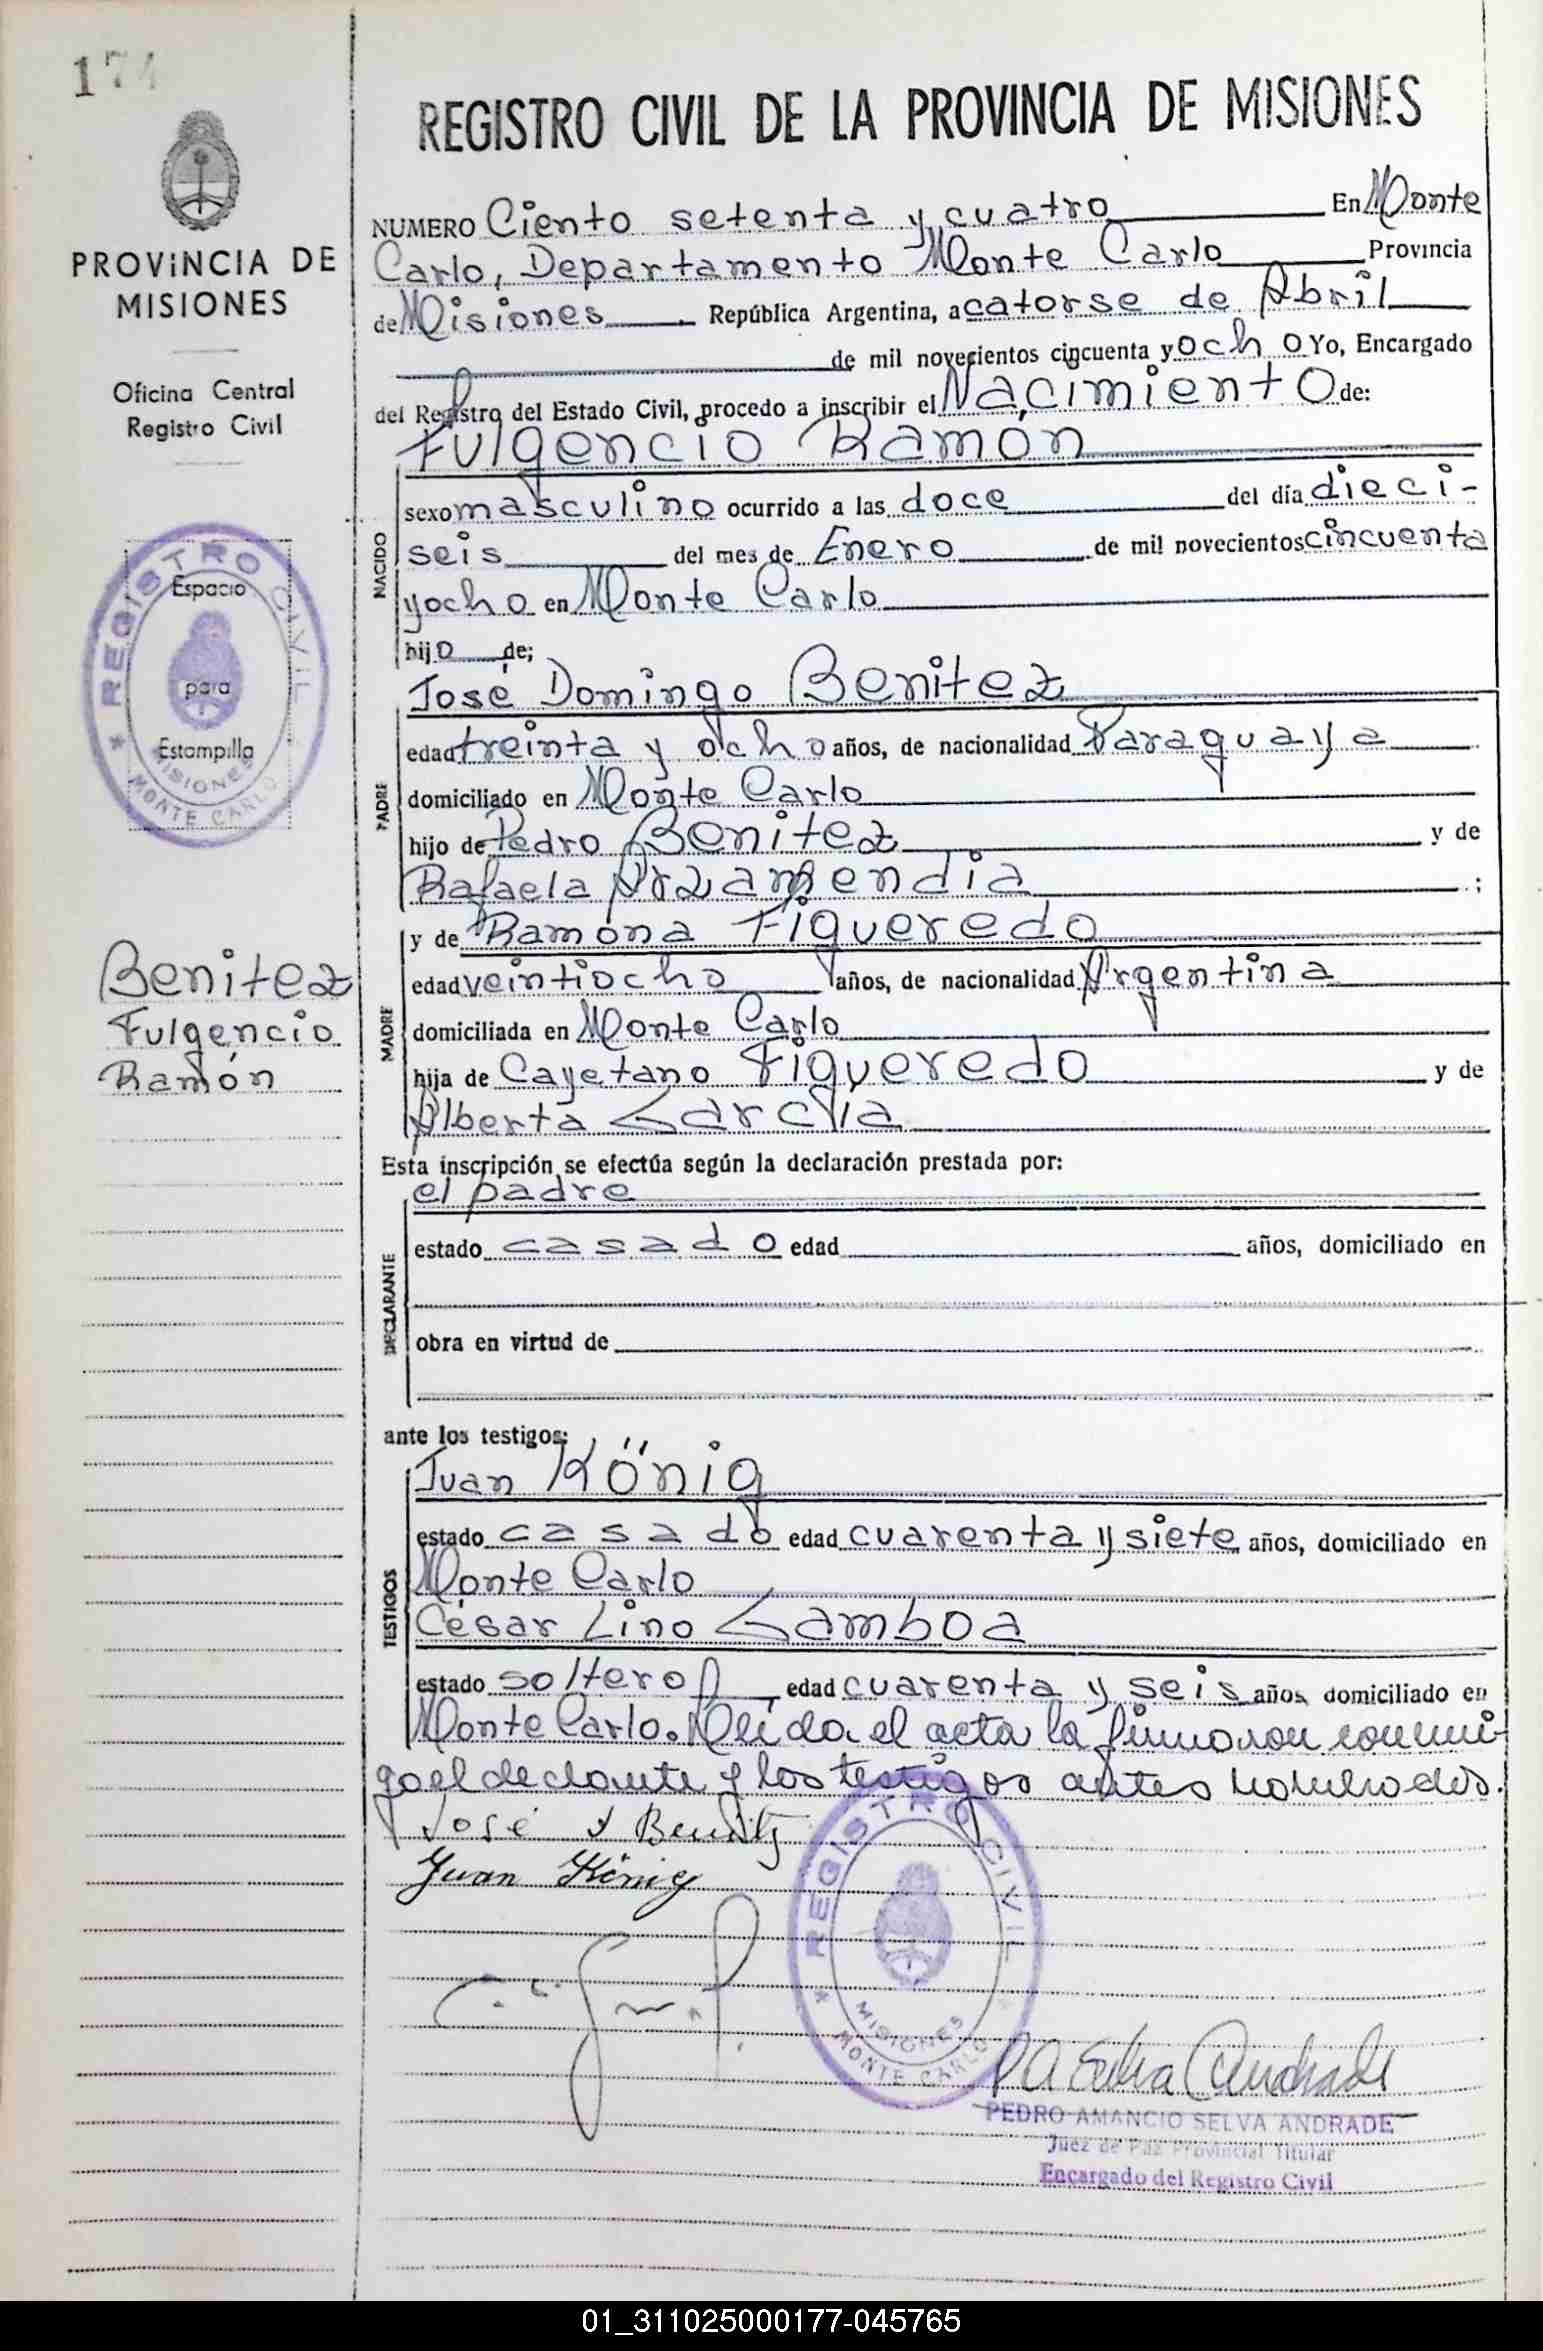 174
PROVINCIA DE
MISIONES
Oficina Central
Registro Civil
REGISTRO CIVIL
Espacio
para
Estampilla
MISIONES
MONTE CARLO
Benitez
Fulgencio
Ramón
REGISTRO CIVIL DE LA PROVINCIA DE MISIONES
NUMERO Ciento setenta y cuatro En Monte
Carlo, Departamento Monte Carlo Provincia
de Misiones República Argentina, a catorse de Abril
de mil novecientos cincuenta y ocho Yo, Encargado
del Registro del Estado Civil, procedo a inscribir el Nacimiento de:
Fulgencio Ramón
NACIDO
sexo masculino ocurrido a las doce del día dieci-
seis del mes de Enero de mil novecientos cincuenta
y ocho en Monte Carlo
hijo de;
José Domingo Benitez
PADRE
edad treinta y ocho años, de nacionalidad Paraguaya
domiciliado en Monte Carlo
hijo de Pedro Benitez y de
Rafaela ;
y de Ramona Figueredo
MADRE
edad veintiocho años, de nacionalidad Argentina
domiciliada en Monte Carlo
hija de Cayetano Figueredo y de
Alberta Garcia
Esta inscripción se efectúa según la declaración prestada por:
el padre
DECLARANTE
estado casado edad años, domiciliado en
obra en virtud de
ante los testigos:
Juan König
TESTIGOS
estado casado edad cuarenta y siete años, domiciliado en
Monte Carlo
César Lino Gamboa
estado soltero edad cuarenta y seis años, domiciliado en
Monte Carlo. Leida el acta la firmaron conmi-
go el declarante y los testigos antes nombrados.
José D Benitez
Juan König
REGISTRO CIVIL
MISIONES
MONTE CARLO
P A Selva Andrade
PEDRO AMANCIO SELVA ANDRADE
Juez de Paz Provincial Titular
Encargado del Registro Civil
01_311025000177-045765